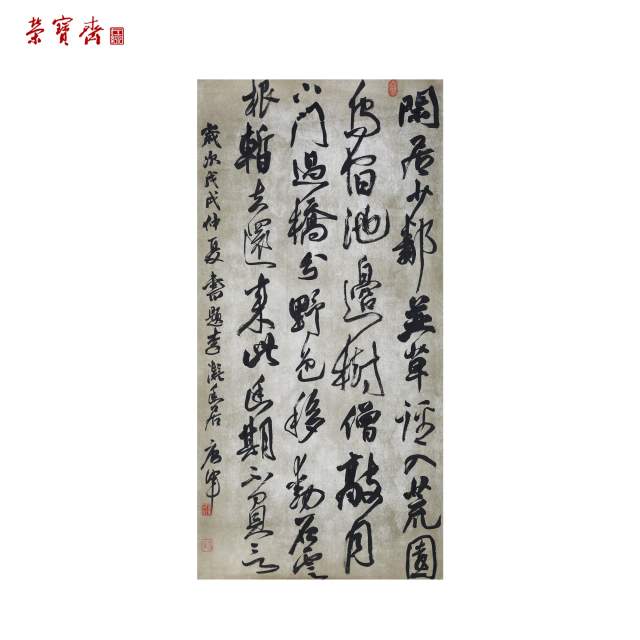 榮寶齋
閑居少鄰並草徑入荒園
鳥宿池邊樹僧敲月
下門過橋分野色移動石雲
根暫去還来此幽期不負言
歲次戊戌仲夏書題李凝幽居